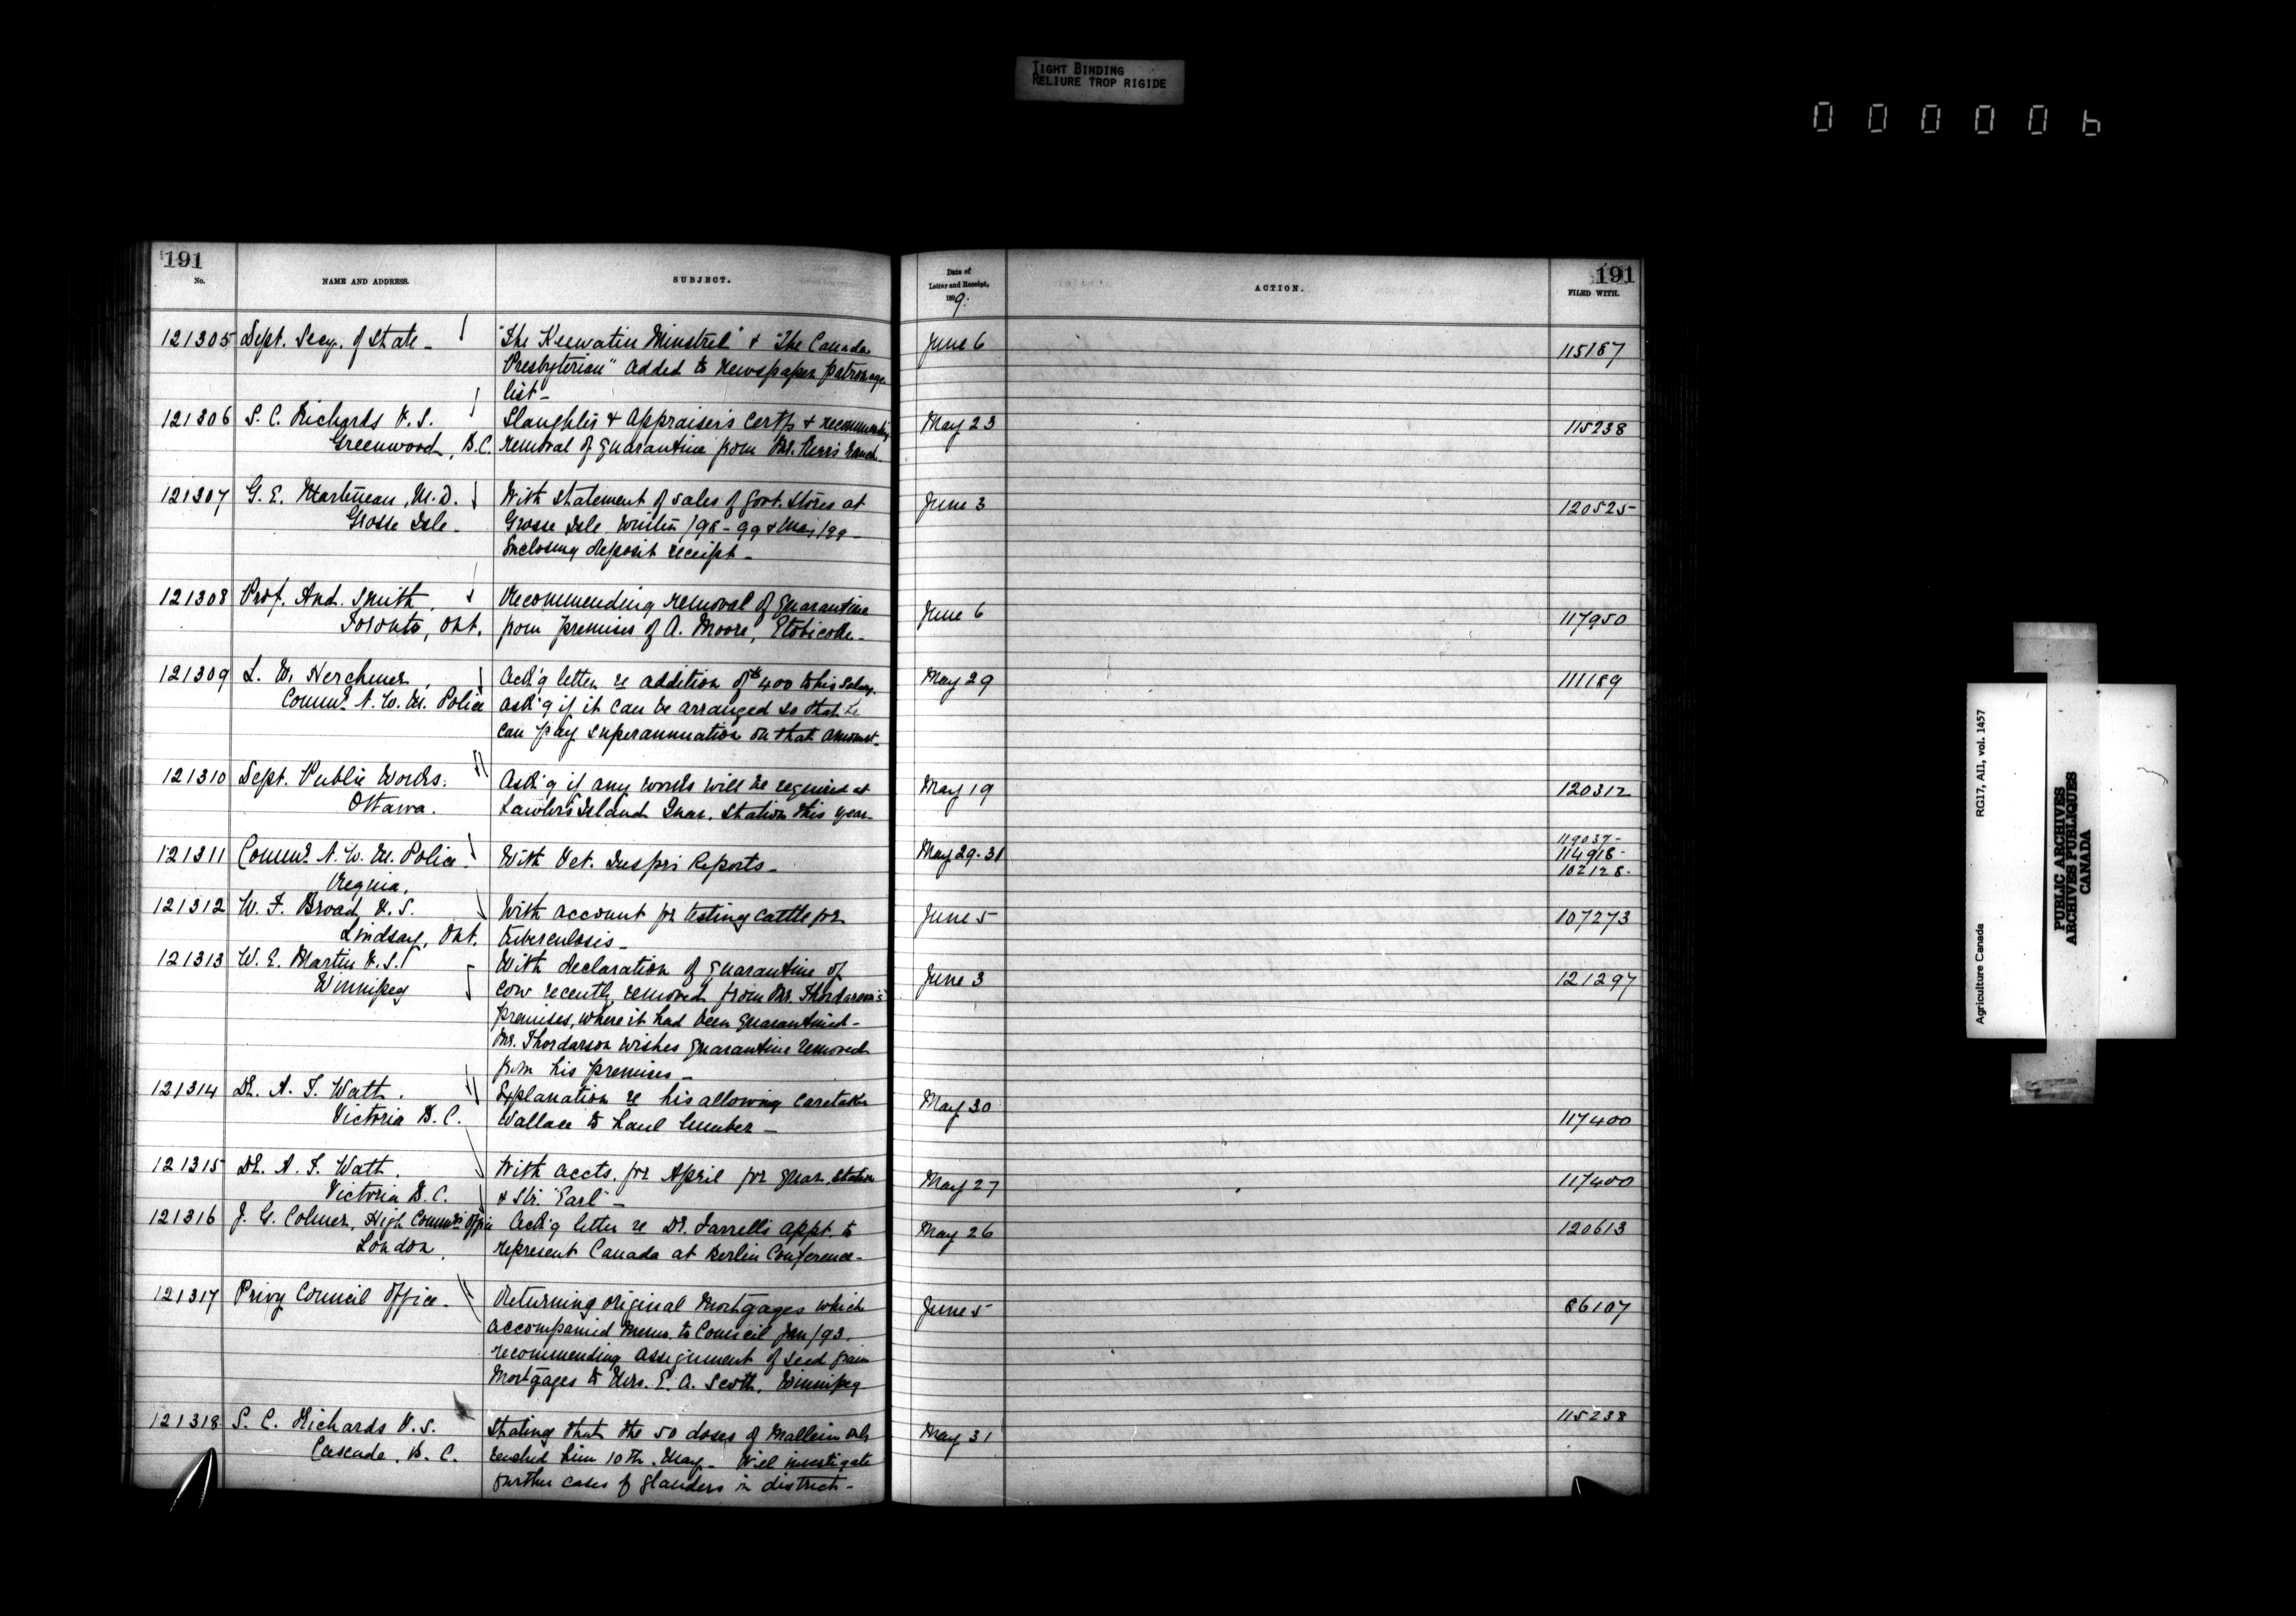 TIGHT BINDING
RELIURE TROP RIGIDE
000006
191
No.
NAME AND ADDRESS.
SUBJECT.
Date of
Letter and Receipt,
1899.
ACTION.
191
FILED WITH.
121305 Dept. Secy. of State - "The Keewatin Minstrel" & "The Canada June 6 115187
Presbyterian" added to newspaper patronage
list -
121306 S. C. Richards V.S. Slaughter & Appraiser's Certfs & recommending May 23 115238
Greenwood, B.C. removal of quarantine from Mr. Kerr's ranch -
121307 G. E. Martineau, M.D. With statement of sales of Govt. Stores at June 3 120525
Grosse Isle - Grosse Isle Winter /98-99 & May /99 -
Enclosing deposit receipt -
121308 Prof. And. Smith, Recommending removal of quarantine June 6 117950
Toronto, Ont. from premises of A. Moore, Etobicoke -
121309 L. W. Herchmer, Ack'g letter re addition of $400 to his Salary. May 29 111189
Commr. N. W. M. Police ask'g if it can be arranged so that he
can pay superannuation on that amount -
121310 Dept. Public Works. Ask'g if any works will be required at May 19 120312
Ottawa. Lawlor's Island Quar. Station this year -
121311 Commr. N. W. M. Police With Vet. Inspr's Reports - May 29-31 119037- 114918- 102128-
Regina.
121312 W. F. Broad, V.S. With account for testing cattle for June 5 107273
Lindsay, Ont. tuberculosis -
121313 W. E. Martin V.S. With declaration of quarantine of June 3 121297
Winnipeg cow recently removed from Mr. Thordarson's
premises, where it had been quarantined -
Mr. Thordarson wishes quarantine removed
from his premises -
121314 Dr. A. T. Watt. Explanation re his allowing caretaker May 30 117400
Victoria B.C. Wallace to haul lumber -
121315 Dr. A. T. Watt. With accts. for April for Quar. Station May 27 117400
Victoria B.C. & Str. "Earl" -
121316 J. G. Colmer, High Commr's Office Ack'g letter re Dr. Farrell's appt. to May 26 120613
London. represent Canada at Berlin Conference -
121317 Privy Council Office - Returning original Mortgages which June 5 86107
accompanied memo. to Council Jan /93.
recommending assignment of seed grain
Mortgages to Mrs. E. A. Scott, Winnipeg
121318 S. C. Richards V.S. Stating that the 50 doses of Mallein only May 31 115238
Cascade, B.C. reached him 10th May - Will investigate
further cases of glanders in district -
Agriculture Canada RG17, AII, vol. 1457
PUBLIC ARCHIVES
ARCHIVES PUBLIQUES
CANADA